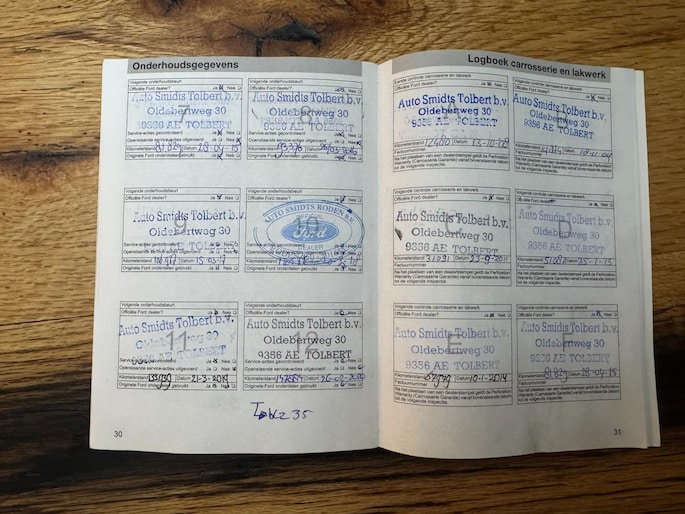 Onderhoudsgegevens
Volgende onderhoudsbeurt
Officiële Ford dealer? Ja Nee
Auto Smidts Tolbert b.v.
7
Oldebertweg 30
9356 AE TOLBERT
Service-acties gecontroleerd Ja Nee
Openstaande service-acties uitgevoerd Ja Nee
Kilometerstand 81829 Datum 28-04-15
Originele Ford onderdelen gebruikt Ja Nee
Volgende onderhoudsbeurt
Officiële Ford dealer? Ja Nee
Auto Smidts Tolbert b.v.
8
Oldebertweg 30
9356 AE TOLBERT
Service-acties gecontroleerd Ja Nee
Openstaande service-acties uitgevoerd Ja Nee
Kilometerstand Datum
Originele Ford onderdelen gebruikt Ja Nee
Volgende onderhoudsbeurt
Officiële Ford dealer? Ja Nee
Auto Smidts Tolbert b.v.
9
Oldebertweg 30
9356 AE TOLBERT
Service-acties gecontroleerd Ja Nee
Openstaande service-acties uitgevoerd Ja Nee
Kilometerstand Datum
Originele Ford onderdelen gebruikt Ja Nee
Volgende onderhoudsbeurt
Officiële Ford dealer? Ja Nee
AUTO SMIDTS RODEN
10
OFFICIAL
Ford
DEALER
Kilometerstand Datum
Originele Ford onderdelen gebruikt Ja Nee
Volgende onderhoudsbeurt
Officiële Ford dealer? Ja Nee
Auto Smidts Tolbert b.v.
11
Oldebertweg 30
9356 AE TOLBERT
Service-acties gecontroleerd Ja Nee
Openstaande service-acties uitgevoerd Ja Nee
Kilometerstand Datum 21-3-2019
Originele Ford onderdelen gebruikt Ja Nee
Volgende onderhoudsbeurt
Officiële Ford dealer? Ja Nee
Auto Smidts Tolbert b.v.
12
Oldebertweg 30
9356 AE TOLBERT
Service-acties gecontroleerd Ja Nee
Openstaande service-acties uitgevoerd Ja Nee
Kilometerstand Datum 26-02-2020
Originele Ford onderdelen gebruikt Ja Nee
30
Logboek carrosserie en lakwerk
Eerste controle carrosserie en lakwerk
Officiële Ford dealer? Ja Nee
Auto Smidts Tolbert b.v.
A
Oldebertweg 30
9356 AE TOLBERT
Kilometerstand Datum
Factuurnummer
Na het plaatsen van een dealerstempel geldt de Perforation
Warranty (Carrosserie Garantie) vanaf bovenstaande datum
tot de volgende inspectie.
Volgende controle carrosserie en lakwerk
Officiële Ford dealer? Ja Nee
Auto Smidts Tolbert b.v.
Oldebertweg 30
9356 AE TOLBERT
Kilometerstand Datum
Factuurnummer
Na het plaatsen van een dealerstempel geldt de Perforation
Warranty (Carrosserie Garantie) vanaf bovenstaande datum
tot de volgende inspectie.
Volgende controle carrosserie en lakwerk
Officiële Ford dealer? Ja Nee
Auto Smidts Tolbert b.v.
Oldebertweg 30
9356 AE TOLBERT
Kilometerstand 31091 Datum 23-9-2011
Factuurnummer
Na het plaatsen van een dealerstempel geldt de Perforation
Warranty (Carrosserie Garantie) vanaf bovenstaande datum
tot de volgende inspectie.
Volgende controle carrosserie en lakwerk
Officiële Ford dealer? Ja Nee
Auto Smidts Tolbert b.v.
D
Oldebertweg 30
9356 AE TOLBERT
Kilometerstand Datum 25-1-13
Factuurnummer
Na het plaatsen van een dealerstempel geldt de Perforation
Warranty (Carrosserie Garantie) vanaf bovenstaande datum
tot de volgende inspectie.
Volgende controle carrosserie en lakwerk
Officiële Ford dealer? Ja Nee
Auto Smidts Tolbert b.v.
E
Oldebertweg 30
9356 AE TOLBERT
Kilometerstand Datum 10-1-2014
Factuurnummer
Na het plaatsen van een dealerstempel geldt de Perforation
Warranty (Carrosserie Garantie) vanaf bovenstaande datum
tot de volgende inspectie.
Volgende controle carrosserie en lakwerk
Officiële Ford dealer? Ja Nee
Auto Smidts Tolbert b.v.
F
Oldebertweg 30
9356 AE TOLBERT
Kilometerstand 81829 Datum 28-04-15
Factuurnummer
Na het plaatsen van een dealerstempel geldt de Perforation
Warranty (Carrosserie Garantie) vanaf bovenstaande datum
tot de volgende inspectie.
31